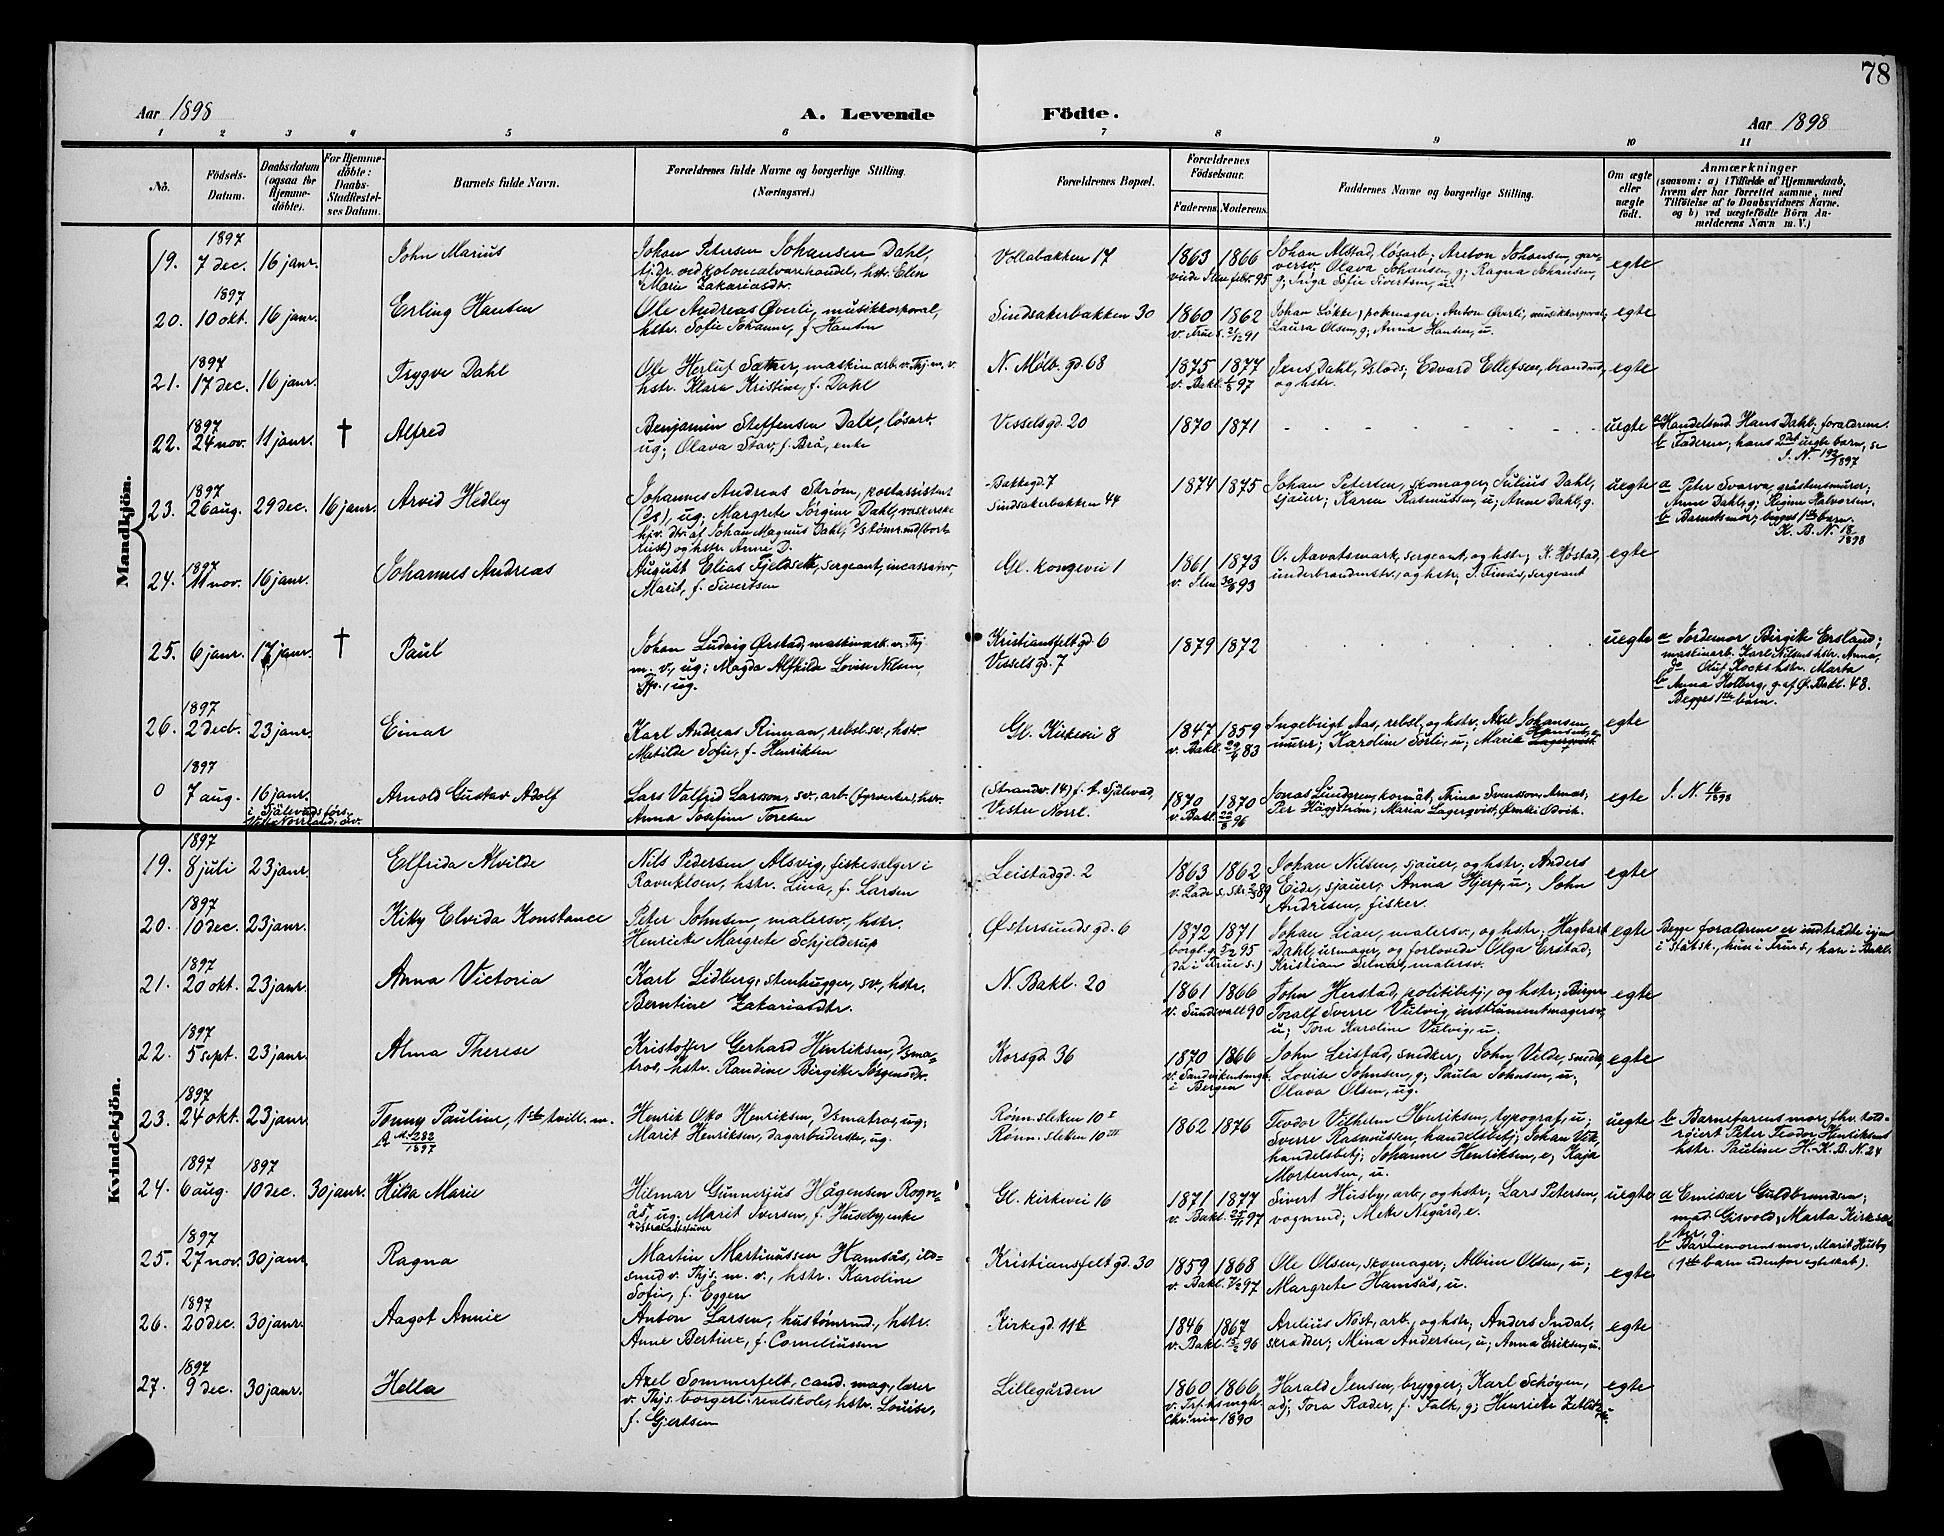 78
Aar 1898
A. Levende Födte.
Aar 1898
1 2 3 4 5 6 7 8 9 10 11
No.
Födsels-
Datum.
Daabsdatum
(ogsaa for
Hjemme-
döbte).
For Hjemme-
döbte:
Daabs-
Stadfæstel-
ses Datum.
Barnets fulde Navn.
Forældrenes fulde Navne og borgerlige Stilling.
(Næringsvei.)
Forældrenes Bopæl.
Forældrenes
Födselsaar.
Faderens. Moderens.
Faddernes Navne og borgerlige Stilling.
Om ægte
eller
uægte
födt.
Anmærkninger
(saasom: a) i Tilfælde af Hjemmedaab,
hvem der har forrettet samme, med
Tilföielse af to Daabsvidners Navne.
og b) ved uægtefödte Börn An-
melderens Navn m. V.)
Mandkjön.
1897
19. 7 dec. 16 janr.
John Marius
Johan Petersen Johansen Dahl,
tjdr. ved kolonialvarehandel, hstr. Elen
Marie Zakariasdtr.
Vollabakken 17
1863 1866
Johan Alstad, løsarb; Anton Johansen, gar-
versv., Olava Johansen, g; Ragna Johansen,
g; Inga Sofie Sivertsen, u.
egte
1897
20. 10 okt. 16 janr.
Erling Hansen
Ole Andreas Øverli, musikkorporal,
hstr. Sofie Johanne, f. Hansen
Sindsakerbakken 30
1860 1862
Johan Løkke, pokermager; Anton Øverli, musikkorporal,
Laura Olsen, g; Anna Hansen, u.
egte
1897
21. 17 dec. 16 janr.
Trygve Dahl
Ole Herluf Sæther, maskinarb. v. Thj. m. v.
hstr. Klara Kristine, f. Dahl
N. Møllb. gd. 68
1875 1877
v. Bakl. 1/8 97
Jens Dahl, Islods; Edvard Ellefsen, brandmd,
og hstr.
egte
1897
22. 24 nov. 11 janr. †
Alfred
Benjamin Steffensen Dahl, løsarb.
ug; Olava Stav, f. Brå, enke
Vesselsgd. 20
1870 1871
uegte
a Handelsmd. Hans Dahl; forældrene.
b Faderen; hans 2det uegte barn, se
J. N. 192/1897
1897
23. 26 aug. 29 dec. 16 janr.
Arvid Hedley
Johannes Andreas Strøm, postassistent
ug; Margrete Jørgine Dahl, vaskerske
hjv. dtr. af Johan Magnus Dahl, tømrmd (bort-
reist) og hstr. Anne D.
Bakkegd. 7
Sindsakerbakken 44
1874 1875
Johan Petersen, skomager; Julius Dahl,
sjauer; Karen Rasmussen, u; Anne Dahl, g.
uegte
a Peter Svarva, gråstensmurer;
Anne Dahl, g; Regine Halvorsen.
b Barnets mor; begges 1ste barn.
K. B. N. 18/1898
1897
24. 11 nov. 16 janr.
Johannes Andreas
August Elias Fjeldseth, sergeant, incassator,
Marit, f. Sivertsen
Gl. kongevei 1
1861 1873
v. Ilen 30/6 93
O. Aavatsmark, sergeant, og hstr; K. Høstad,
underbrandmstr., og hstr; J. Finås, sergeant
egte
25. 6 janr. 17 janr. †
Paul
Johan Ludvig Ørstad, maskinarb. v. Thj.
m. v., ug; Magda Alfhilda Lovise Nilsen,
Tjp., ug.
Kristiansfeltgd 6
Vesselsgd. 7
1879 1872
uegte
a Jordemor Birgitte Ersland;
maskinarb. Karl Nilsens hstr. Anna,
do Oluf Kocks hstr. Marta
b Anna Holberg, g. af Ø. Bakl. 48.
Begges 1ste barn.
1897
26. 2 decb. 23 janr.
Einar
Karl Andreas Rinnan, rebsl. sv., hstr.
Matilde Sofie, f. Henriksen
Gl. Kirkevei 8
1847 1859
v. Bakl. 29/4 83
Ingebrigt Aas, rebsl., og hstr, Axel Johansen,
murer; Karoline Sörli, u; Maria Hansen, e.
egte
1897
0 7 aug. 16 janr.
Arnold Gustav Adolf
Lars Valfrid Larsson, sv. arb. hstr.
Anna Josefine Toresen
(Strandv. 14) f. t. Själevad,
Vestre Norrl.
1870 1870
v. Bakl. 22/8 96
Jonas Lundgren, kornät; Thina Svensson Arnäs;
Per Häggström; Maria Lagerqvist, Örnsköldvik.
egte
J. N. 16/1898
Kvindekjön.
1897
19. 8 juli 23 janr.
Elfrida Alvilde
Nils Pedersen Alsvig, fiskesælger i
Ravnkloen, hstr. Lina, f. Larsen
Leistadgd. 2
1863 1862
Johan Nilsen, sjauer, og hstr; Anders
Eide, sjauer; Anna Hjerp, u; John
Andresen, fisker.
egte
1897
20. 10 dec. 23 janr.
Kitty Elvida Konstance
Peter Johnsen, malersv., hstr.
Henriette Margrete Schjelderup
Østersundsgd. 6
1872 1871
borgl. g. 5/2 95
(da i Frue s.)
Johan Lian, malersv., og hstr; Hagbart
Dahl, urmager og forlovede Olga Erstad;
Kristian Selnæs, malersv.
egte
Begge forældrene er indtrådte igjen
i Statsk., hun i Frue s., han i Bakl.
1897
21. 20 okt. 23 janr.
Anna Victoria
Karl Lidberg, stenhugger, sv., hstr.
Berntine Zakariasdtr.
N. Bakl. 20
1861 1866
v. Sundsvall 90
John Herstad, politibetj., og hstr; Birger
Tocalf Sverre Vulvig, instrumentmagersv,
u; Tora Karoline Vulvig, u.
egte
1897
22. 5 sept. 23 janr.
Alma Therese
Kristoffer Gerhard Henriksen, dsma-
tros, hstr. Randine Birgitte Jørgensdtr.
Korsgd. 36
1870 1866
v. Sandvikens mgh.
i Bergen
John Leistad, snedker; John Vilde, snedk.,
Lovise Johnsen, g; Paula Johnsen, u;
Olava Olsen, ug.
egte
1897
23. 24 okt. 23 janr.
Tonny Pauline, 1ste tvill. m.
A No 282/1897
Henrik Otto Henriksen, dsmatros, ug;
Marit Henriksen, dagarbiderske, ug.
Rønn.sletten 10 I
Rønn.sletten 10 III
1862 1876
Teodor Vilhelm Henriksen, typograf, u;
Sverre Rasmussen, handelsbetj; Johan Vik,
handelsbetj; Johanne Henriksen, e; Kaja
Mortensen, u.
uegte
b Barnefarens mor, fhv. told-
röiert Peter Teodor Henriksens
hstr. Pauline H. K. B. N. 24
1897 1897
24. 6 aug. 10 dec. 30 janr.
Hilda Marie
Hilmar Gunnerius Hågensen Rogn-
ås, ug; Marit Iversen, f. Huseby, enke
Gl. kirkevei 16
1871 1877
v. Bakl. 25/1 97
Sivert Husby, arb., og hstr; Lars Petersen,
vognmd; Mette Aegård, e.
uegte
a Emissær Guldbrandsen;
mad. Gisvold; Marta Kirksæ-
ter, g.
b Barnemorens mor, Marit Husby
(1ste barn udenfor egteskab).
1897
25. 27 nov. 30 janr.
Ragna
Martin Martinussen Hamsås, ild-
smed v. Thjs. m. v., hstr. Karoline
Sofie, f. Eggen
Kristiansfelt gd. 30
1859 1868
v. Bakl. 7/2 97
Ole Olsen, skomager; Albine Olsen, u;
Margrete Hamsås, u.
egte
1897
26. 20 dec. 30 janr.
Aagot Annie
Anton Larsen, hustømrmd., hstr.
Anne Bertine, f. Corneliussen
Kirkegd. 11b
1846 1867
v. Bakl. 15/2 96
Arilius Nöst, arb., og hstr; Anders Indal,
skrædder; Mina Andersen, u; Anna Eriksen, u.
egte
1897
27. 9 dec. 30 janr.
Hella
Axel Sommerfelt, cand. mag., lærer
v. Thjs. borgerl. realskole, hstr. Louise,
f. Gjertsen
Lillegården
1860 1866
v. Trfk.s mgh.
Chr.nia 1890
Harald Jensen, brygger; Karl Schøyen,
adj; Tora Ræder, f. Falk, g; Henriette Zetlitz, u.
egte